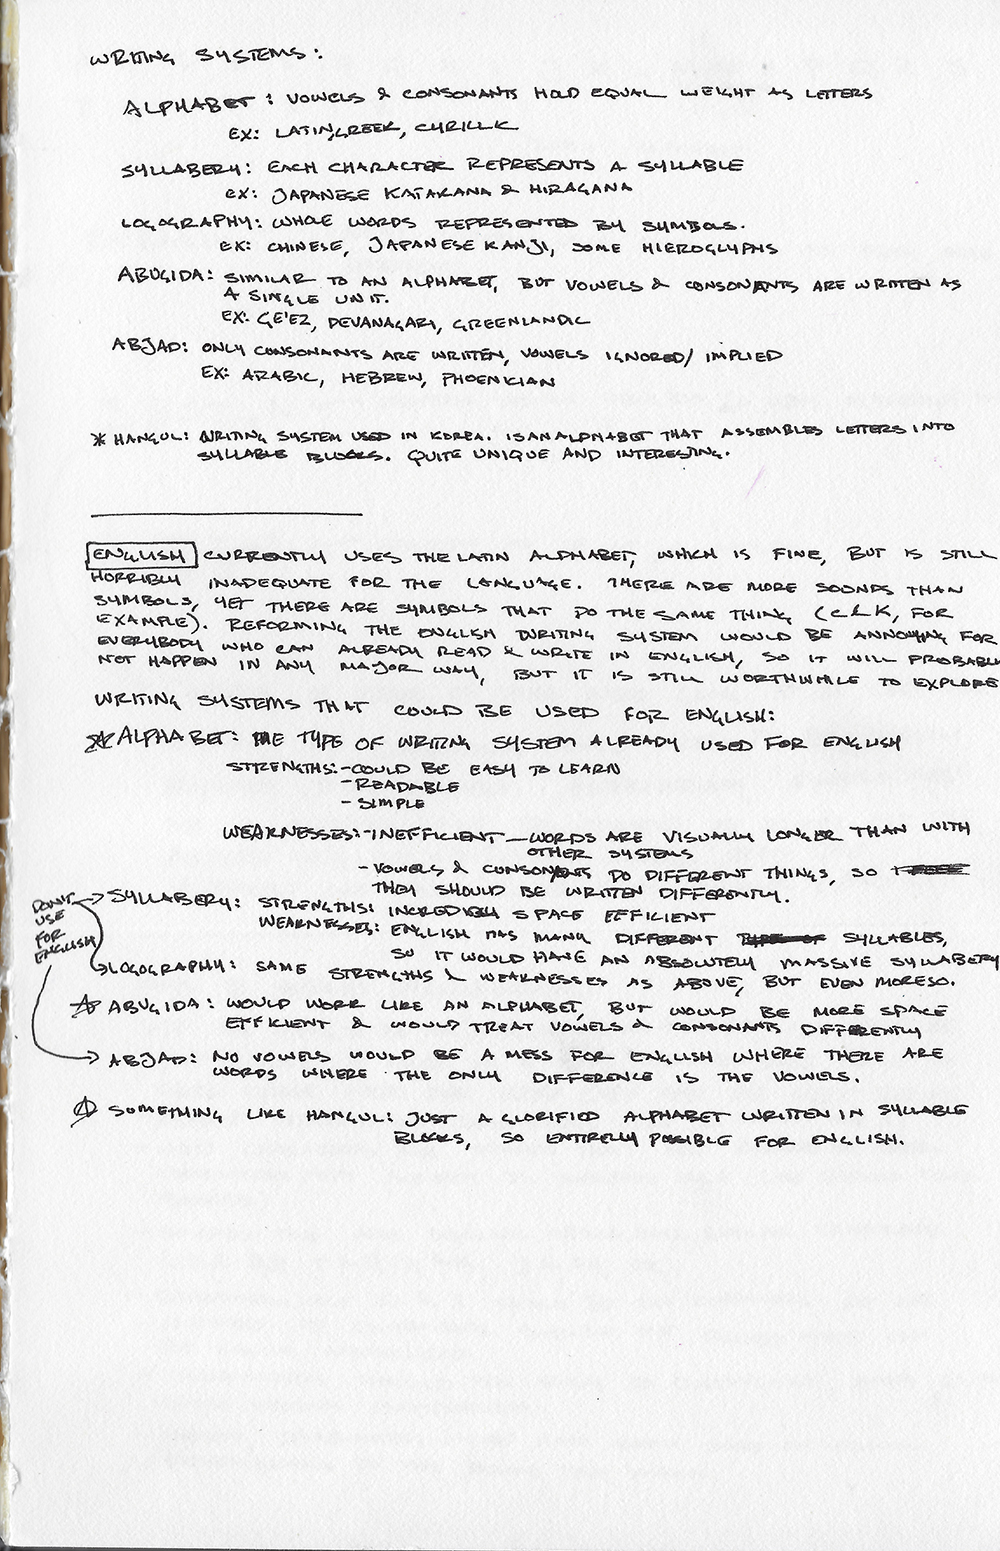 WRITING SYSTEMS:
ALPHABET: VOWELS & CONSONANTS HOLD EQUAL WEIGHT AS LETTERS
EX: LATIN, GREEK, CYRILLIC
SYLLABERY: EACH CHARACTER REPRESENTS A SYLLABLE
EX: JAPANESE KATAKANA & HIRAGANA
LOGOGRAPHY: WHOLE WORDS REPRESENTED BY SYMBOLS.
EX: CHINESE, JAPANESE KANJI, SOME HIEROGLYPHS
ABUGIDA: SIMILAR TO AN ALPHABET, BUT VOWELS & CONSONANTS ARE WRITTEN AS
A SINGLE UNIT.
EX: GE'EZ, DEVANAGARI, GREENLANDIC
ABJAD: ONLY CONSONANTS ARE WRITTEN, VOWELS IGNORED/IMPLIED
EX: ARABIC, HEBREW, PHOENICIAN
* HANGUL: WRITING SYSTEM USED IN KOREA. IS AN ALPHABET THAT ASSEMBLES LETTERS INTO
SYLLABLE BLOCKS. QUITE UNIQUE AND INTERESTING.
ENGLISH CURRENTLY USES THE LATIN ALPHABET, WHICH IS FINE, BUT IS STILL
HORRIBLY INADEQUATE FOR THE LANGUAGE. THERE ARE MORE SOUNDS THAN
SYMBOLS, YET THERE ARE SYMBOLS THAT DO THE SAME THING (C & K, FOR
EXAMPLE). REFORMING THE ENGLISH WRITING SYSTEM WOULD BE ANNOYING FOR
EVERYBODY WHO CAN ALREADY READ & WRITE IN ENGLISH, SO IT WILL PROBABLY
NOT HAPPEN IN ANY MAJOR WAY, BUT IT IS STILL WORTHWHILE TO EXPLORE
WRITING SYSTEMS THAT COULD BE USED FOR ENGLISH:
ALPHABET: THE TYPE OF WRITING SYSTEM ALREADY USED FOR ENGLISH
STRENGTHS: - COULD BE EASY TO LEARN
- READABLE
- SIMPLE
WEAKNESSES: - INEFFICIENT — WORDS ARE VISUALLY LONGER THAN WITH
OTHER SYSTEMS
- VOWELS & CONSONANTS DO DIFFERENT THINGS, SO
THEY SHOULD BE WRITTEN DIFFERENTLY.
DON'T
USE
FOR
ENGLISH
SYLLABERY: STRENGTHS: INCREDIBLY SPACE EFFICIENT
WEAKNESSES: ENGLISH HAS MANY DIFFERENT SYLLABLES,
SO IT WOULD HAVE AN ABSOLUTELY MASSIVE SYLLABERY
LOGOGRAPHY: SAME STRENGTHS & WEAKNESSES AS ABOVE, BUT EVEN MORESO.
ABUGIDA: WOULD WORK LIKE AN ALPHABET, BUT WOULD BE MORE SPACE
EFFICIENT & WOULD TREAT VOWELS & CONSONANTS DIFFERENTLY
ABJAD: NO VOWELS WOULD BE A MESS FOR ENGLISH WHERE THERE ARE
WORDS WHERE THE ONLY DIFFERENCE IS THE VOWELS.
SOMETHING LIKE HANGUL: JUST A GLORIFIED ALPHABET WRITTEN IN SYLLABLE
BLOCKS, SO ENTIRELY POSSIBLE FOR ENGLISH.